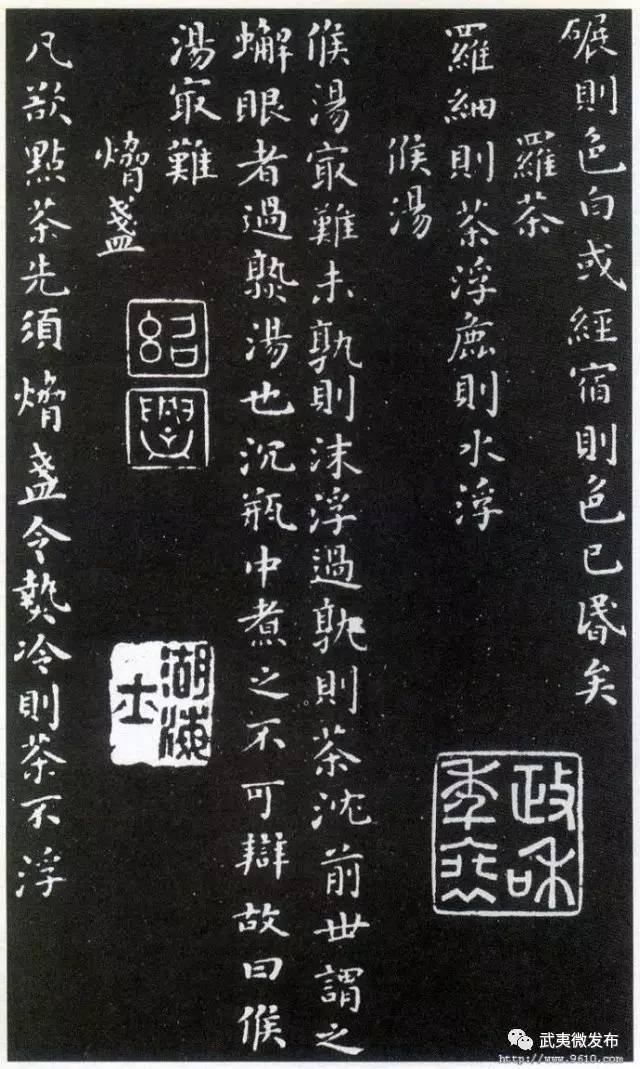 碾則色白或經宿則色已昬矣
羅茶
羅細則茶浮麄則水浮
候湯
候湯冣難未孰則沫浮過孰則茶沈前丗謂之
蠏眼者過熟湯也沉瓶中煮之不可辯故曰候
湯冣難
熁盞
凡欲點茶先須熁盞令熱冷則茶不浮
政和
紹
興
湖海
士
武夷微发布
http://www.9610.com